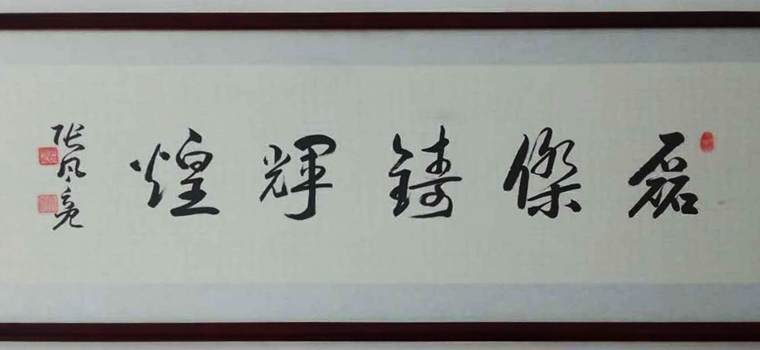 磊傑鑄輝煌
張風亮